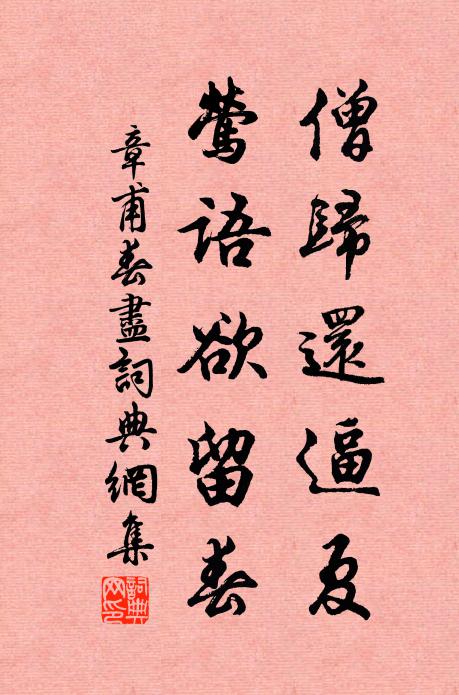 僧歸還逼夏
鶯語欲留春
章甫春盡詞典網集
詞典網印